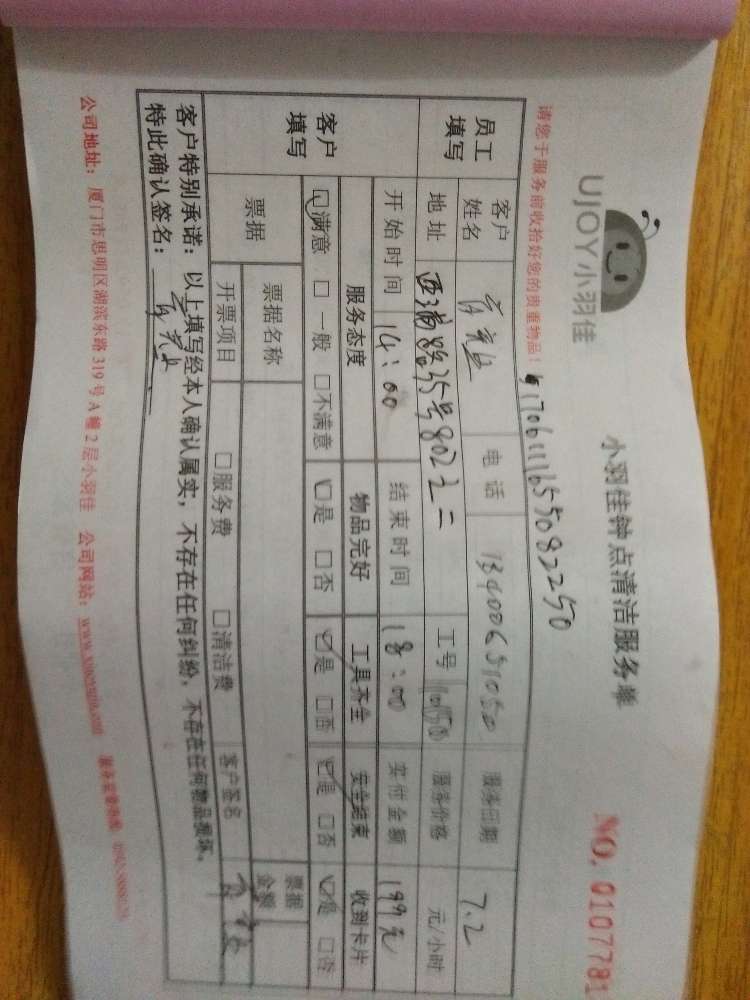 UJOY小羽佳
小羽佳钟点清洁服务单
NO. 0107781
请您于服务前收拾好您的贵重物品！
员工填写 客户姓名 电话 13400651050 服务日期 7.2
地址 西湖路35号802之二 工号 服务价格 元/小时
开始时间 14:00 结束时间 18:00 实付金额 199元
客户填写 服务态度 物品完好 工具齐全 安全结束 收到卡片
☑满意 □一般 □不满意 ☑是 □否 ☑是 □否 ☑是 □否 ☑是 □否
票据 票据名称 票据金额
开票项目 □服务费 □清洁费 客户签名
客户特别承诺：以上填写经本人确认属实，不存在任何纠纷，不存在任何物品损坏，
特此确认签名：
公司地址：厦门市思明区湖滨东路319号A幢2层小羽佳 公司网站：